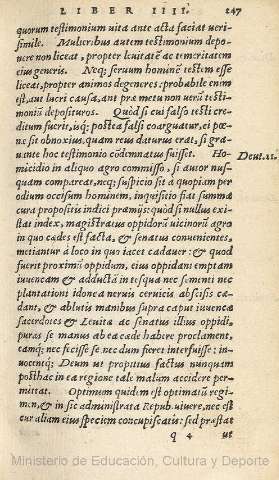 LIBER IIII. 247
quorum testimonium uita ante acta faciat ueri-
simile. Mulieribus autem testimonium depo-
nere non liceat, propter leuitatẽ ac temeritatem
eius generis. Neq; seruum hominẽ testem esse
liceat, propter animos degeneres: probabile enim
est, aut lucri causa, aut præ metu non uerũ testi-
moniũ deposituros. Quòd si cui falso testi cre-
ditum fuerit, isq; postea falsi coarguatur, ei pœ-
næ sit obnoxius, quam reus daturus erat, si gra-
uante hoc testimonio cõdemnatus fuisset. Ho-
Deut. 21.
micidio in aliquo agro commisso, si autor nus-
quam compareat, neq; suspicio sit à quopiam per
odium occisum hominem, inquisitio fiat summa
cura propositis indici præmijs: quòd si nullus exi-
stat index, magistratus oppidorũ uicinorũ agro
in quo cædes est facta, & senatus conuenientes,
metiantur à loco in quo iacet cadauer: & quod
fuerit proximũ oppidum, eius oppidani emptam
iuuencam & adductã in tesqua nec sementi nec
plantationi idonea neruis ceruicis abscisis cæ-
dant, & ablutis manibus supra caput iuuencæ
sacerdotes & Leuitæ ac senatus illius oppidi,
puras se manus ab ea cæde habere proclament,
eamq; nec fecisse se, nec dum fieret interfuisse: in-
uocentq; Deum ut propitius factus nunquam
posthac in ea regione tale malum accidere per-
mittat. Optimum quidem est optimatũ regi-
men, & in sic administrata Repub. uiuere, nec est
cur aliam eius speciem concupiscatis: sed præstat
q 4 ut
Ministerio de Educación, Cultura y Deporte